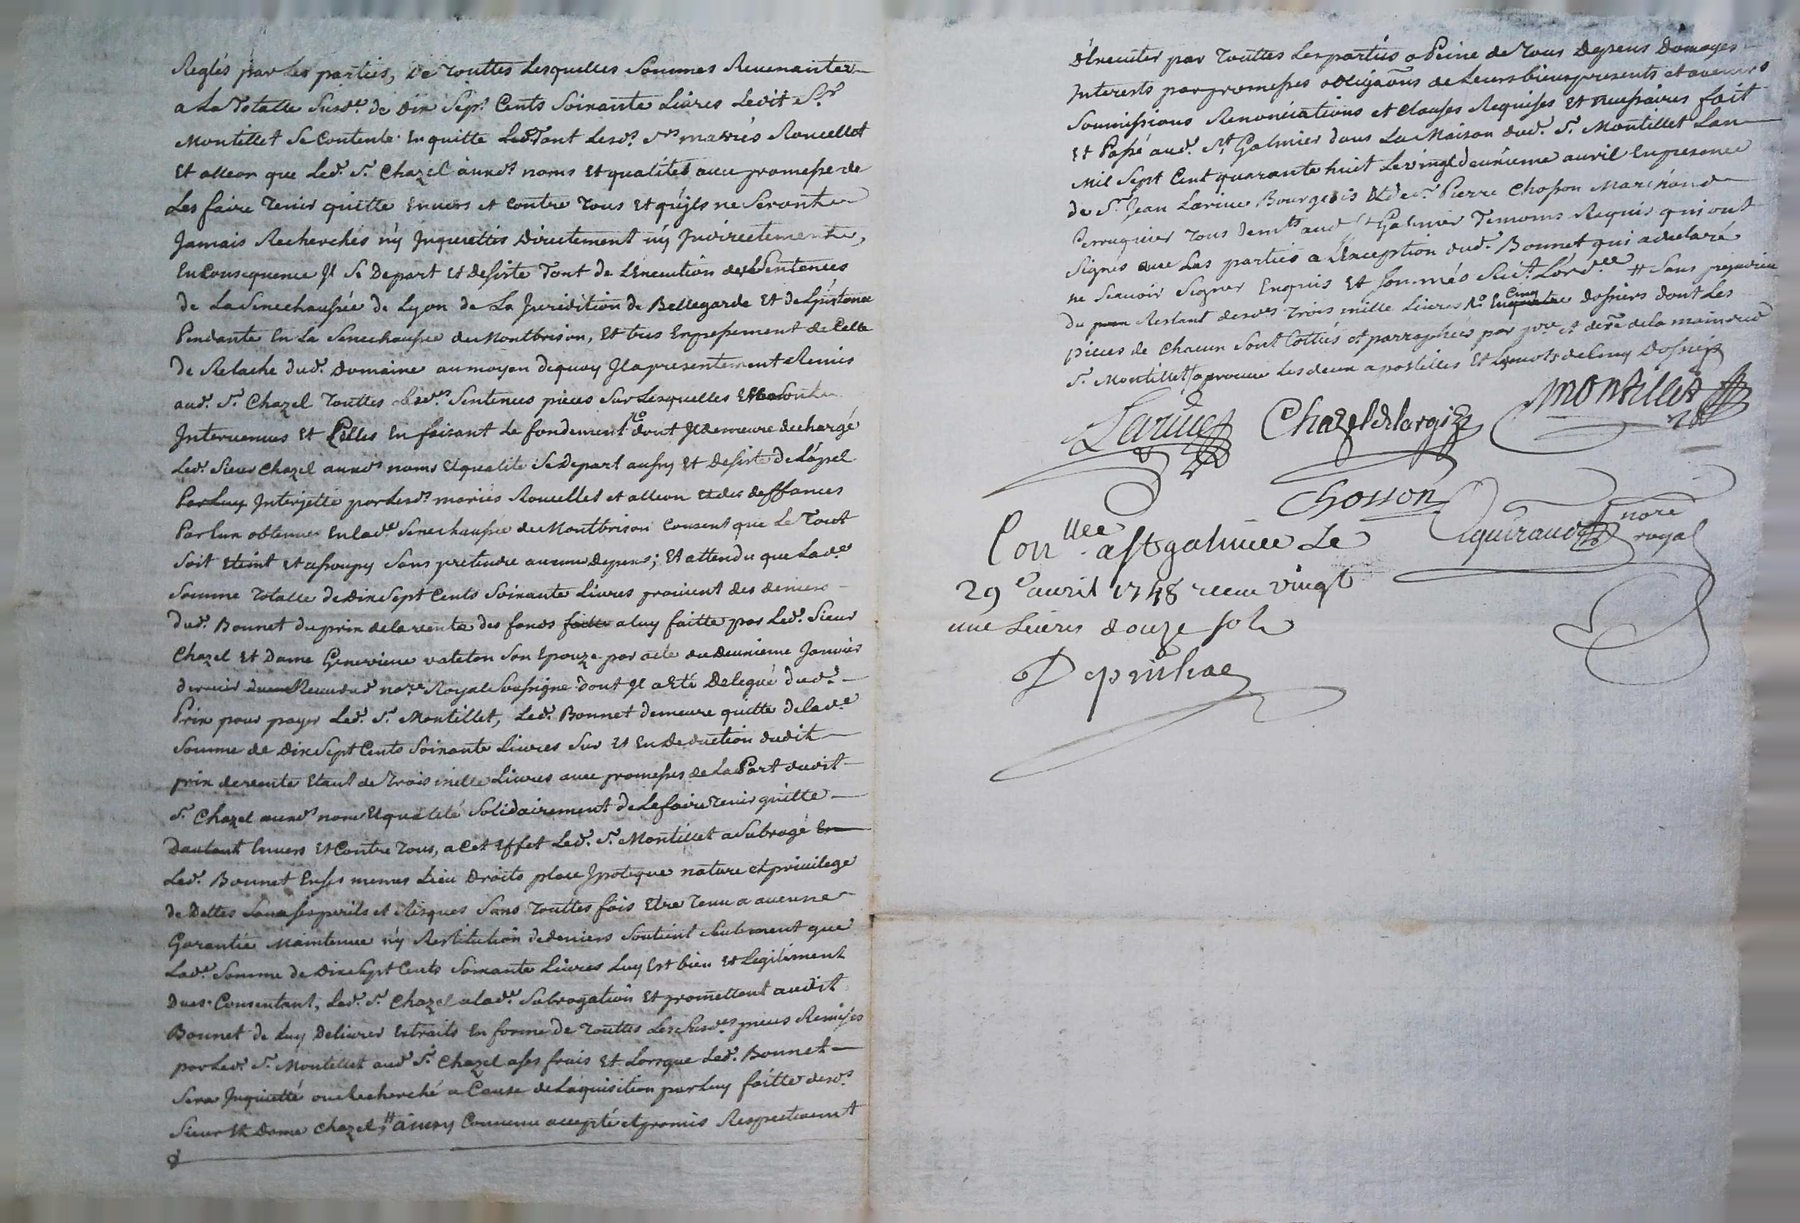 Reglés par les parties, De touttes lesquelles sommes Revenantes
a La Totalle susd.e de dix sept Cents soixante Livres Ledit S.r
Montillet se Contente En quitte Led. tant lesd.s S.rs mariés Roucellet
Et alleon que Led. S.r Chazel auxd.s noms Et qualités avec promesse de
Les faire tenir quitte Envers et Contre Tous Et qu'ils ne seront
Jamais Recherchés n'y Inquiettés Directement n'y Indirectement,
En Consequence Il se Depart Et desiste Tant de L'execution desd. Sentences
de La Senechaussée de Lyon de La Juridition de Bellegarde Et de L'instance
Pendante En La Senechaussée de Montbrison, Et tres Expressement de Celle
de Relache dud. Domaine au moyen dequoy Il a presentement Remis
aud. S.r Chazel Touttes lesd.s Sentences pieces sur Lesquelles Elles sont
Intervenues Et Celles En faisant Le fondement dont Il demeure dechargé
Led. Sieur Chazel auxd.s noms Et qualité Se depart aussy Et desiste de L'apel
Par Luy Interjetté par Lesd.s mariés Roucellet et alleon Et des deffances
Par Eux obtenues En lad.e Senechaussée de Montbrison Consent que Le Tout
soit Eteint Et assoupy Sans pretendre aucuns depens; Et attendu que Lad.e
somme Totalle de Dix Sept Cents Soixante Livres provient des deniers
dud. Bonnet du prix de la vente des fonds faitte a luy faitte par Led. Sieur
Chazel Et Dame Genevieve vateton Son Epouze par acte du deuxieme Janvier
dernier Receu dud no.re Royal Soussigné dont Il a Eté Delegué dud.
Prix pour payer Led. S.r Montillet, Led. Bonnet demeure quitte de lad.e
Somme de Dix Sept Cents Soixante Livres Sur Et En Deduction dudit
prix de vente Etant de Trois mille Livres avec promesses de La Part dudit
S.r Chazel auxd.s noms Et qualité Solidairement de Le faire Tenir quitte
Dautant Envers Et Contre Tous, a Cet Effet Led. S.r Montillet a Subrogé En
Led. Bonnet En ses memes Lieu Droits place Ipoteque nature et privilege
de Dettes Sous ses perils et Risques Sans Touttes fois Etre Tenu a aucune
Garantie Maintenue n'y Restitution de deniers Soutient Seulement que
Lad.e Somme de Dix Sept Cents Soixante Livres Luy Est bien Et Legitiment
Dues. Consentant, Led. S.r Chazel a lad. Subrogation Et promettent audit
Bonnet de Luy Delivrer Extraits En forme de Touttes Les Susd.es pieces Remises
par Led. S.r Montillet aud S.r Chazel a ses frais Et Lorsque Led. Bonnet
Sera Inquietté ou Recherché a Cause de Laquisition par Luy faitte desd.s
Sieur Et Dame Chazel, # ainsy Convenu accepté et promis Respectivement
d'Executer par Touttes Les parties a Peine de Tous Depens Domages
Interests par promesses obligations de Leurs biens presents et avenir
Soumissions Renonciations et Clauses Requises Et necessaires fait
Et Passé aud. S.t Galmier dans La Maison dud. S.r Montillet Lan
Mil Sept Cent quarante huit Le vingt deuxieme avril En presence
de S.r Jean Larive Bourgeois Et de S.r Pierre Chosson Marchand
Perruquier Tous demts aud S.t Galmier Temoins Requis qui ont
Signés avec Les parties a L'exception dud. Bonnet qui a declaré
ne Scavoir Signer Enquis Et Sommés # Sans prejudice
du Restant desd.s Trois mille Livres Cinq Dossiers dont Les
pieces de Chacun Sont Cottées et parraphées par p.re et der.e de la main dud
S.r Montillet, aprouvé Les deux apostilles Et Le mots de Cinq Dossiers
Larive Chazel Delargis Montillet
Chosson Aguiraud no.re royal
Con.llee a St galmier Le
29 e avril 1748 receu vingt
une Livres douze sols
Depinhac